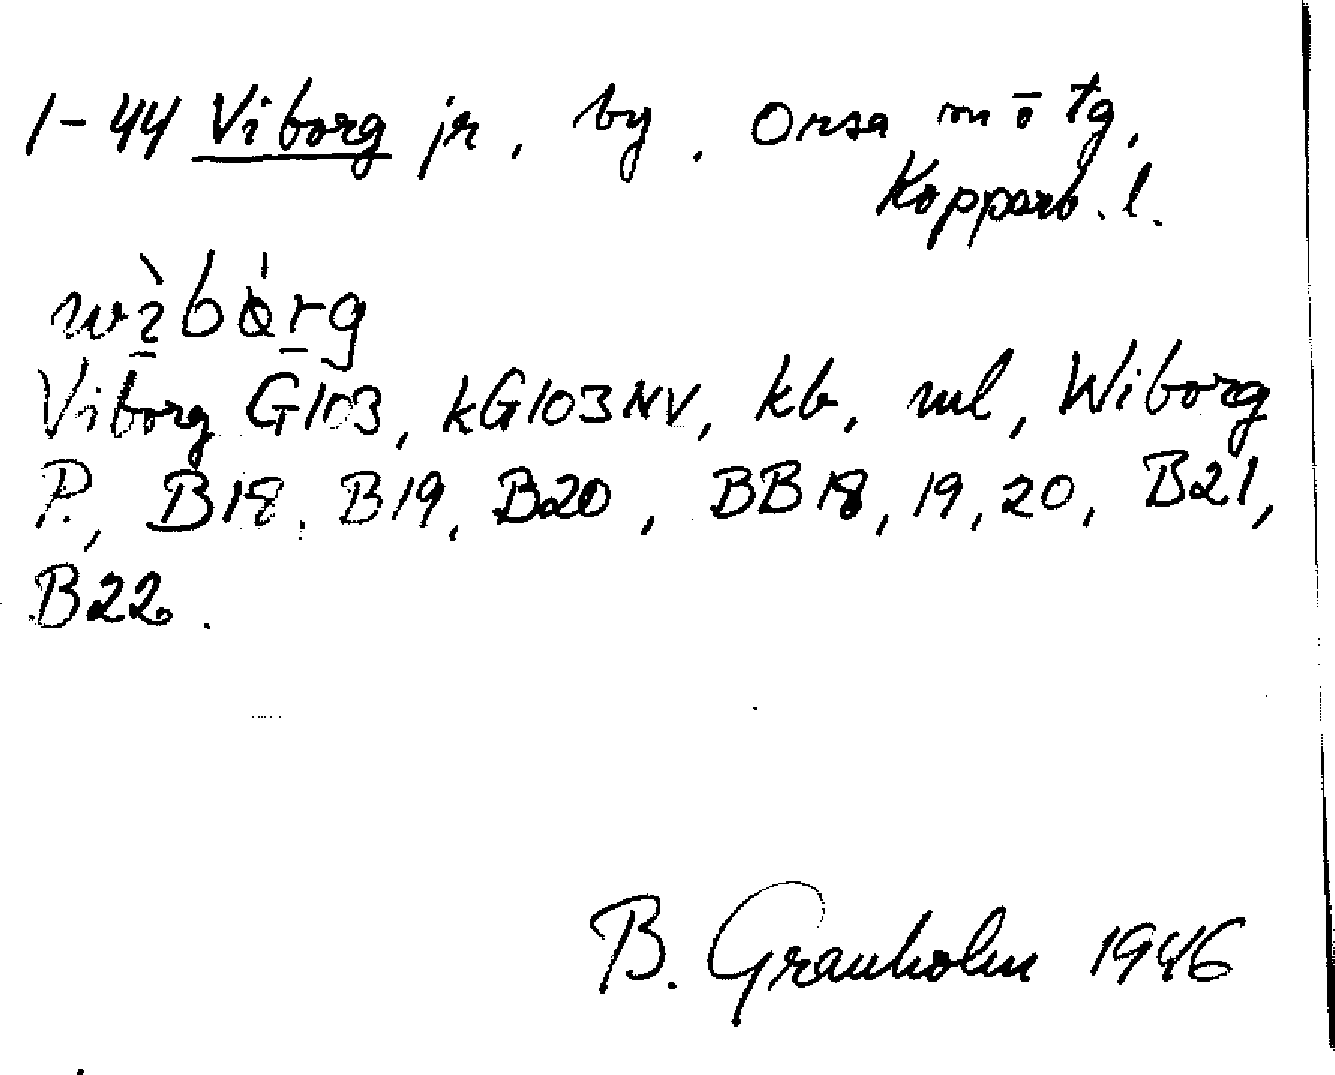 1-44 Viborg jr, by, Orsa m ō tg,
Kopparb. l.
wìbȯrg
Viborg G103, kG103NV, kb, ml, Wiborg
P., B18, B19, B20, BB18, 19, 20, B21,
B22.
B. Granholm 1946